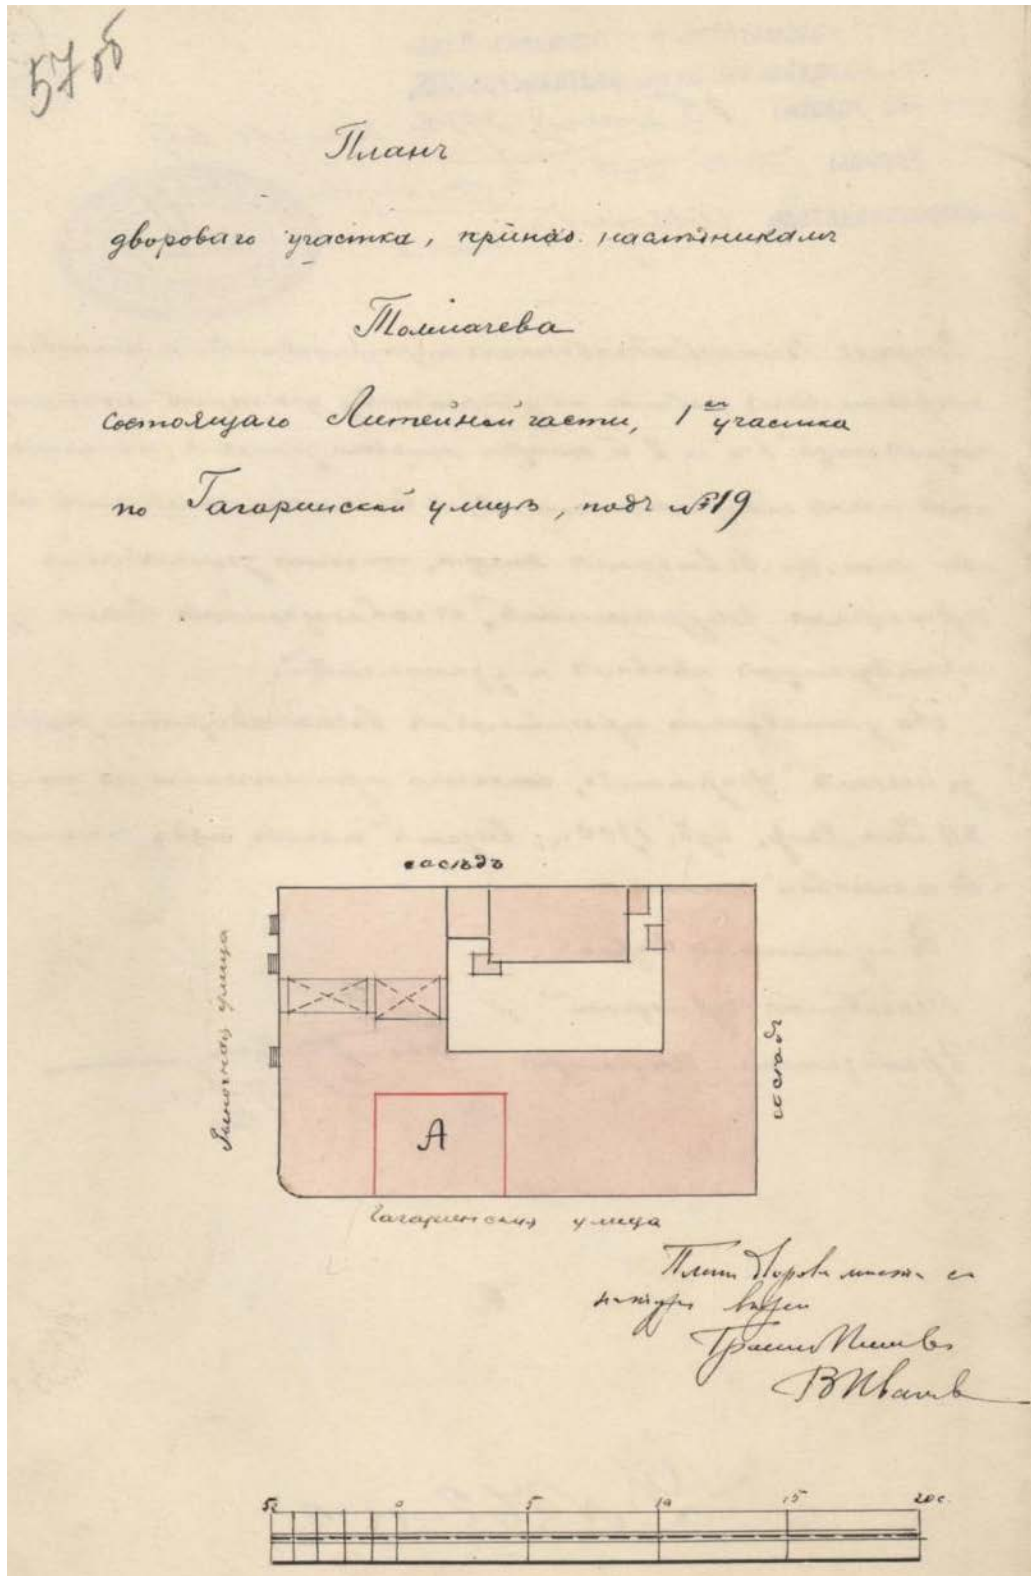 57 об
Планъ
двороваго участка, принад. наслѣдникамъ
Толмачева
состоящаго Литейной части, 1го участка
по Гагаринской улицѣ, подъ №19
сосѣдъ
Гагаринская улица
сосѣдъ
А
Планъ двороваго мѣста съ
натуры
Гражд. Инженеръ
В Иванов
5 0 5 10 15 20 с.